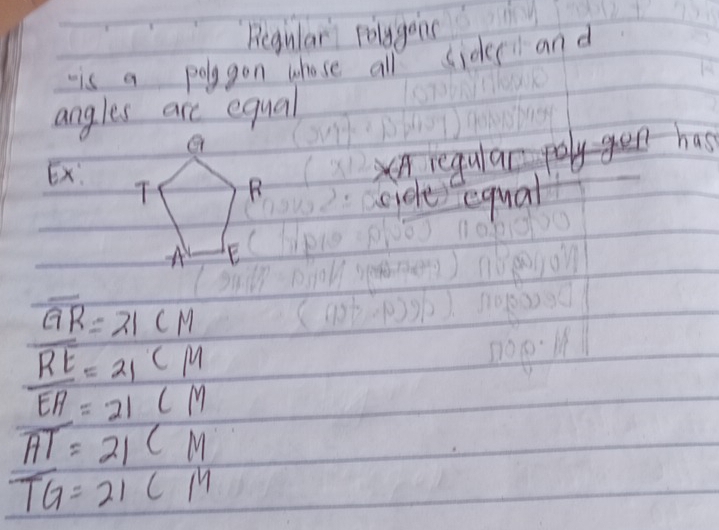 Regular Polygone
-is a polygon whose all sides and
angles are equal
Ex:
G
T R
A E
×A regular poly gon has
side equal
GR = 21 CM
RE = 21 CM
EA = 21 CM
AT = 21 CM
TG = 21 CM